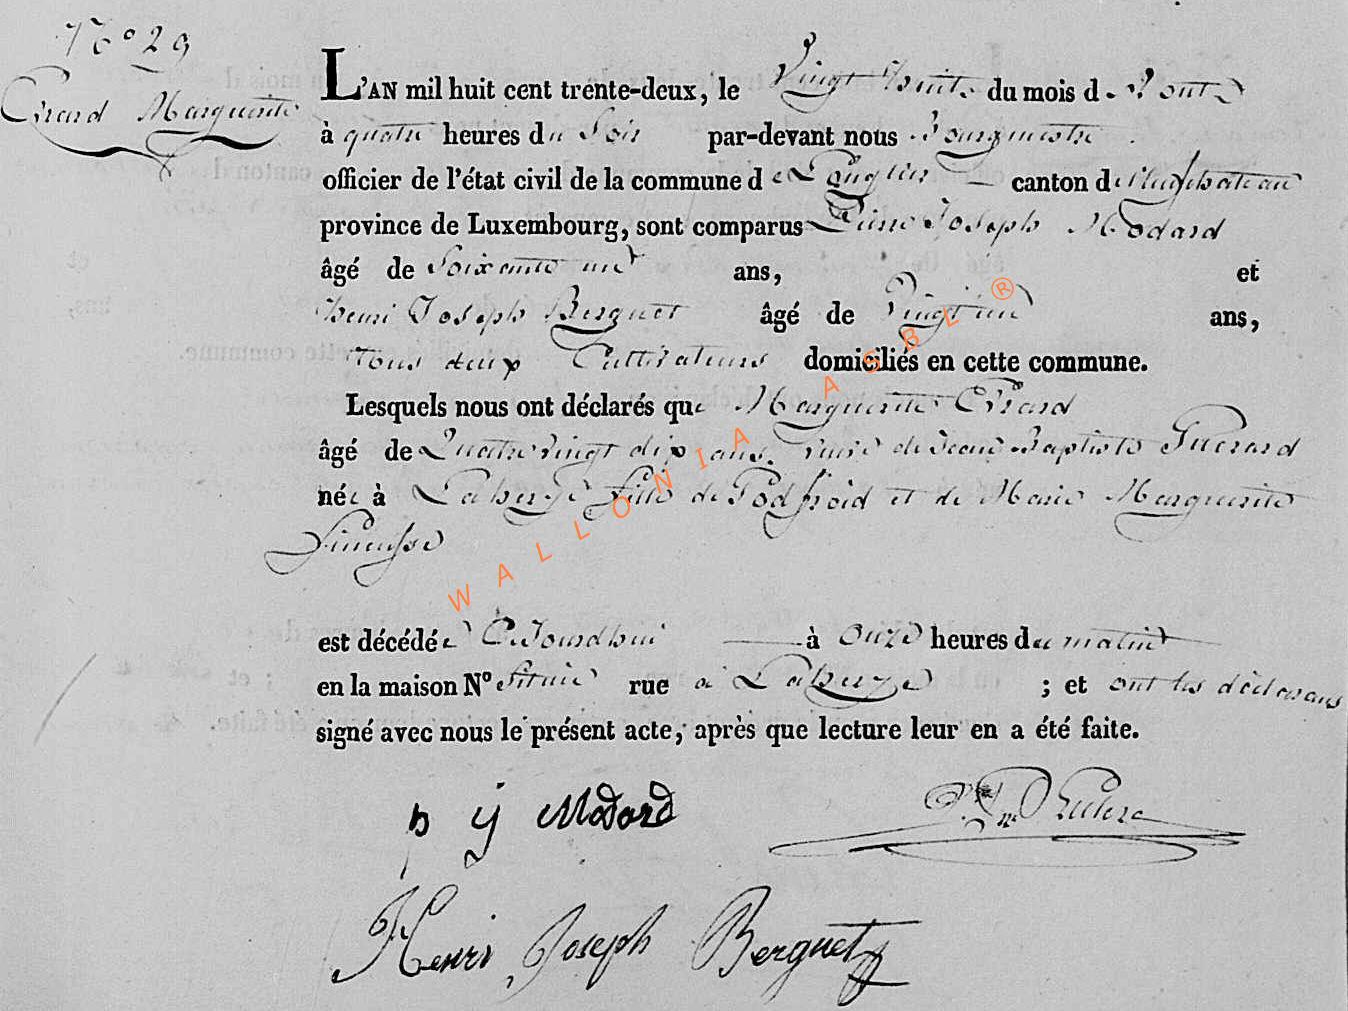 N° 29
Evrard Marguerite
L'AN mil huit cent trente-deux, le Vingt huit du mois d'Aout
à quatre heures du Soir par-devant nous Bourgmestre
officier de l'état civil de la commune de Longlier canton de Neufchateau
province de Luxembourg, sont comparus Pierre Joseph Modard
âgé de Soixante un ans, et
henri Joseph Berguet âgé de Vingt un ans,
tous deux Cultivateurs domiciliés en cette commune.
Lesquels nous ont déclarés que Marguerite Evrard
âgé de Quatre vingt dix ans, veuve de Jean Baptiste Guerard
née à Laherye fille de Godfroid et de Marie Marguerite
est décédée Ce Jourdhui à Onze heures du matin
en la maison N° Située rue à Laherye ; et ont les déclarans
signé avec nous le présent acte, après que lecture leur en a été faite.
p j Modard
Henri Joseph Berguet
WALLONIA ASBL ®